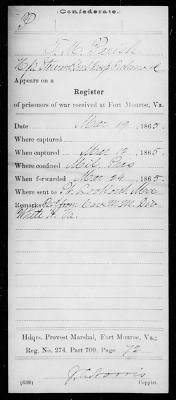 Confederate.
Parish
Appears on a
Register
of prisoners of war received at Fort Monroe, Va.
Date Mar 19, 1865
Where captured
When captured Mar 12, 1865
Where confined Mil. Pris
When forwarded Mar 24, 1865
Where sent to Pt. Lookout Md
Remarks: Rec. from Cav. M. M. Div.
White H. Va.
Hdqrs. Provost Marshal, Fort Monroe, Va.;
Reg. No. 274, Part 700. Page 72
(639) Copyist.